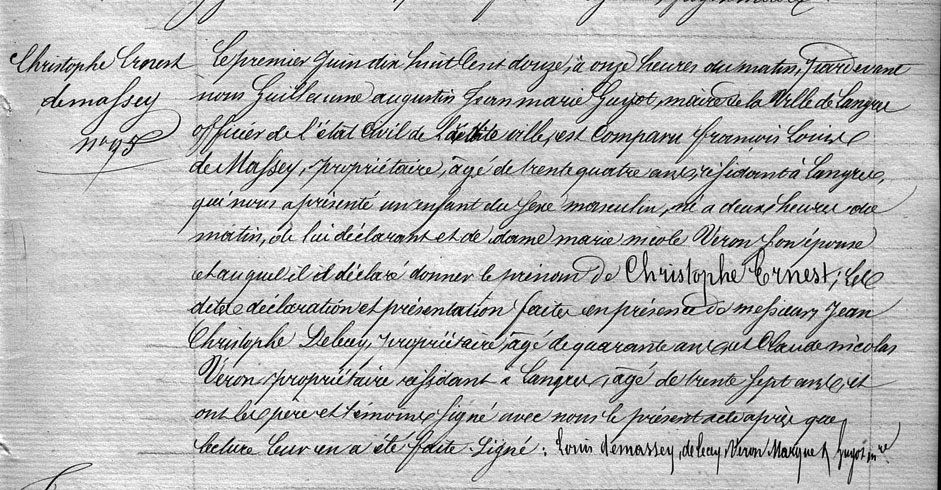 Christophe Ernest
demassey
nº 95
Le premier Juin dix huit Cent douze, à onze heures du matin, Pardevant
nous Guillaume augustin Jean marie Guyot, maire de la Ville de Langres
officier de l'état Civil de ladite ville, est Comparu françois Louis
de Massey, propriétaire, âgé de trente quatre ans, résidant à Langres,
qui nous a présenté un enfant du sexe masculin, né a deux heures du
matin, de lui déclarant et de dame marie nicole Véron son épouse
et auquel il a déclaré donner le prénom de Christophe Ernest; les
dites déclaration et présentation faites en présence de messieurs Jean
Christophe Delecey, propriétaire, âgé de quarante ans et Claude nicolas
Véron propriétaire résidant à Langres, âgé de trente sept ans, et
ont les père et témoins signé avec nous le présent acte après que
lecture leur en a été faite. Signé: Louis demassey, delecey, Véron Guyot mre